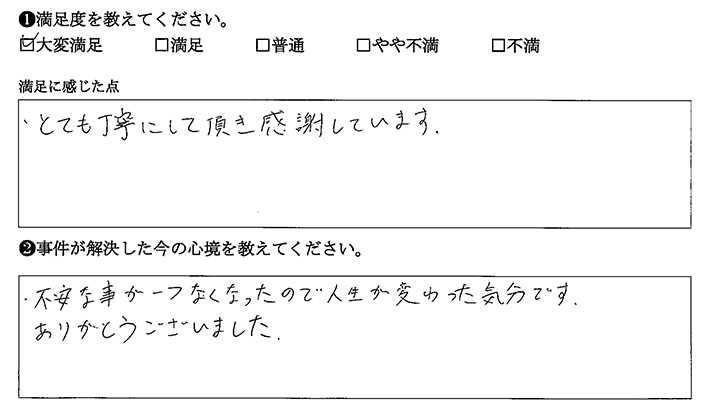 ❶満足度を教えてください。
☑大変満足 □満足 □普通 □やや不満 □不満
満足に感じた点
・とても丁寧にして頂き感謝しています.
❷事件が解決した今の心境を教えてください。
・不安な事が一つなくなったので人生が変わった気分です.
ありがとうございました.